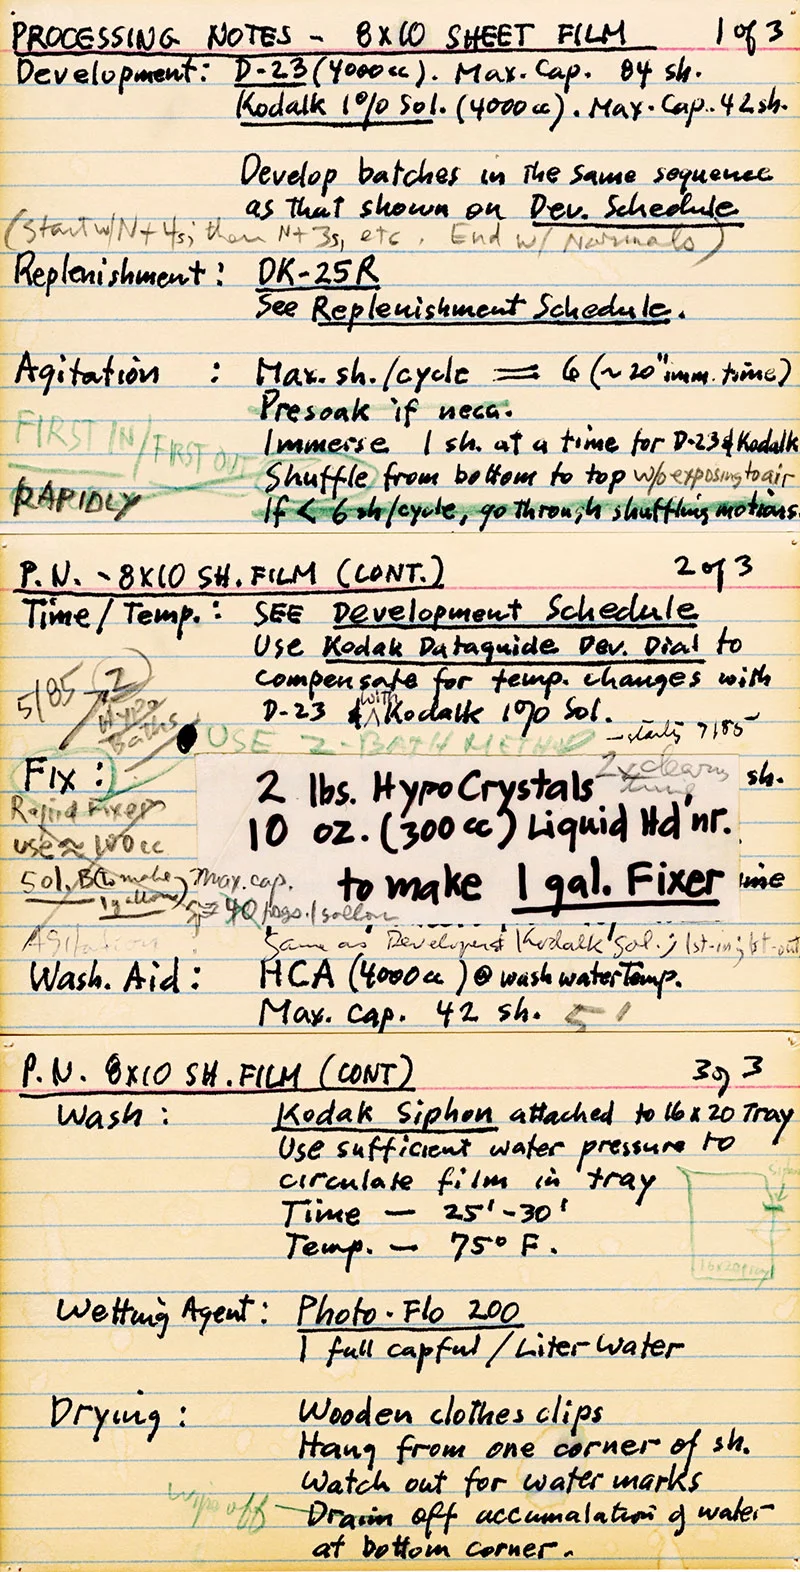 PROCESSING NOTES - 8X10 SHEET FILM 1 of 3
Development: D-23 (4000cc). Max. Cap. 84 sh.
Kodalk 1% Sol. (4000cc). Max. Cap. 42 sh.
Develop batches in the same sequence
as that shown on Dev. Schedule
(Start w/N+4s; then N+3s, etc. End w/ Normals)
Replenishment: DK-25R
See Replenishment Schedule.
Agitation : Max. sh./cycle = 6 (~20" imm. time)
Presoak if neca.
FIRST IN/FIRST OUT
Immerse 1 sh. at a time for D-23 & Kodalk
Shuffle from bottom to top w/o exposing to air
RAPIDLY
If < 6 sh/cycle, go through shuffling motions.
P.N. - 8X10 SH. FILM (CONT.) 2 of 3
Time/Temp.: SEE Development Schedule
Use Kodak Dataguide Dev. Dial to
compensate for temp. changes with
D-23 & with Kodalk 1% Sol.
5/85 2 Hypo Baths
USE 2-BATH METHOD - starts 7/85
Fix : 2x clearing time sh.
2 lbs. Hypo Crystals
10 oz. (300cc) Liquid Hd'nr.
to make 1 gal. Fixer
Rapid Fixer
use ≈ 100cc
Sol. B (to make 1 gallon)
Max. cap.
40 /gallon
Agitation Same as Developer & Kodalk Sol.; 1st-in; 1st-out
Wash. Aid : HCA (4000cc) @ wash water Temp.
Max. Cap. 42 sh. 5'
P.N. 8X10 SH. FILM (CONT) 3 of 3
Wash : Kodak Siphon attached to 16x20 Tray
Use sufficient water pressure to
circulate film in tray
Time — 25'-30'
Temp. — 75° F.
16x20 tray
Wetting Agent: Photo-Flo 200
1 full capful / Liter Water
Drying : Wooden clothes clips
Hang from one corner of sh.
Watch out for water marks
Wipe off
Drain off accumalation of water
at bottom corner.